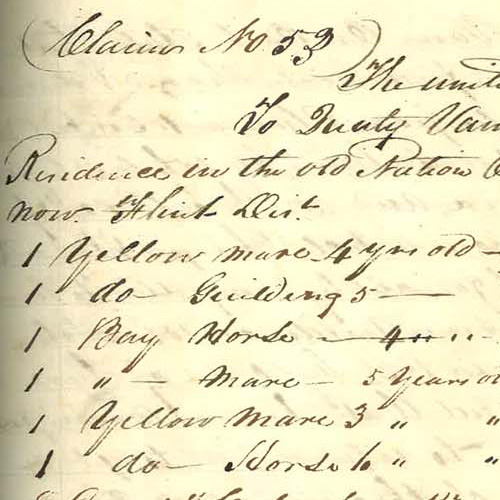 (Claim No 53)
The unite
To Treaty Van
Residence in the old Nation
now Flint Dist
1 Yellow mare 4 yrs old —
1 do — Guilding 5 —
1 Bay Horse — 4 " "
1 " — mare — 5 years o
1 Yellow mare 3 " "
1 do — Horse 6 " "